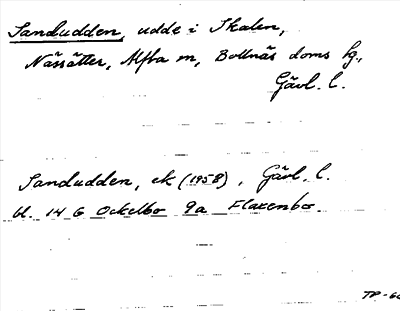 Sandudden, udde i Skalen,
Nässätter, Alfta sn, Bollnäs doms fg.,
Gävl. l.
Sandudden, ek (1958), Gävl. l.
bl. 14 G Ockelbo 9a Flaxenbo
TP-60